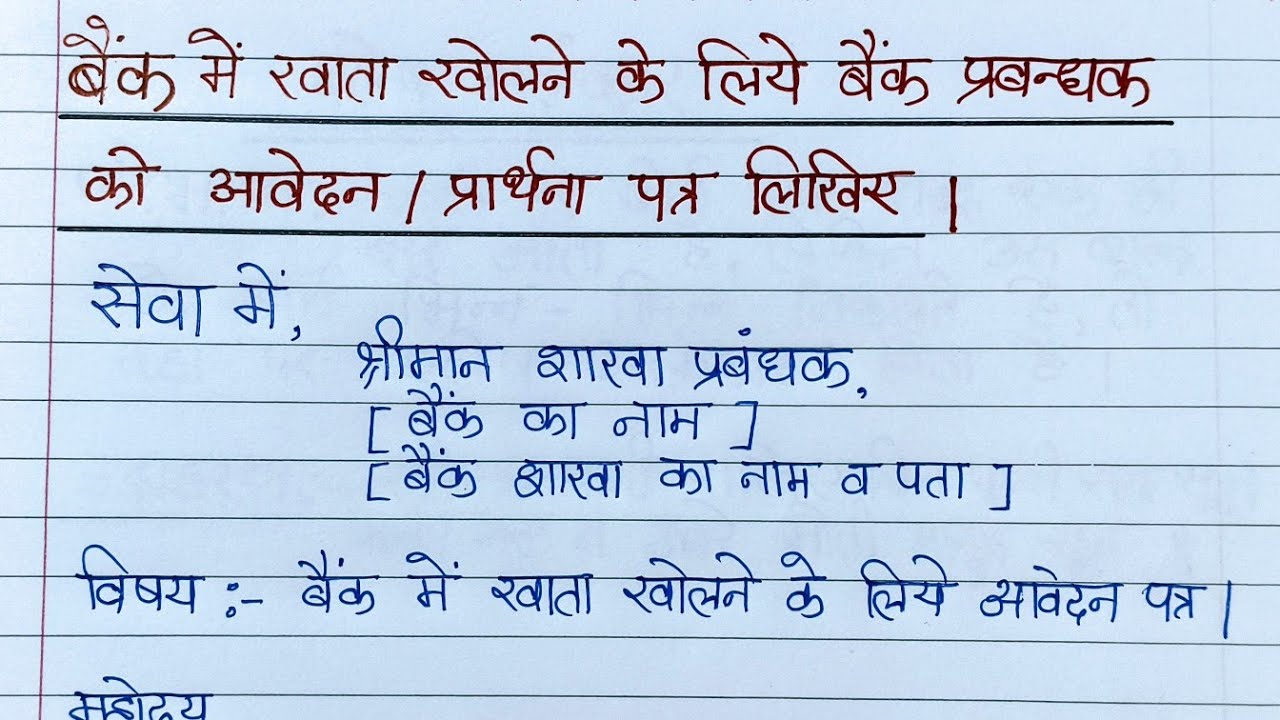 बैंक में खाता खोलने के लिये बैंक प्रबन्धक
को आवेदन / प्रार्थना पत्र लिखिए |
सेवा में,
श्रीमान शाखा प्रबंधक,
[ बैंक का नाम ]
[ बैंक शाखा का नाम व पता ]
विषय :- बैंक में खाता खोलने के लिये आवेदन पत्र |
महोदय